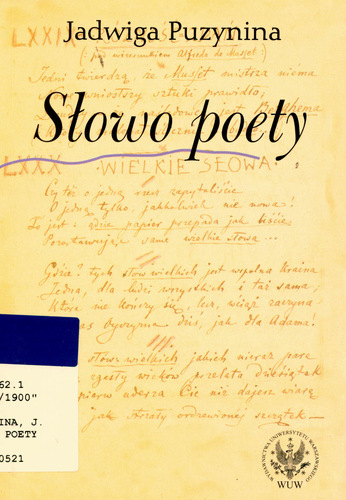 Jadwiga Puzynina
LXXIX
(: pod wizerunkiem Alfreda de Musset :)
Jedni twierdzą, że Musset mistrza niema
sztuki prawidła,
jest
Słowo poety
LXXX WIELKIE SŁOWA
Czy też o jedną rzecz zapytaliście
O jedną tylko, jakkolwiek nie nowa!
To jest: gdzie papier przepada jak liście,
Pozostawując same wielkie słowa...
Gdzie? tych słów wielkich jest wspólna Kraina
Jedna, dla ludzi wszystkich i taż sama,
Która nie kończy się, lecz wciąż zaczyna
as Ojczyzna dziś, jak dla Adama!
słów wielkich jakich nieraz parę
wieków przelata dziesiątek
uderza Cię nie dajesz wiarę
jak strzały ordzewionej szczątek
62.1
/1900"
INA, J.
POETY
0521
WYDAWNICTWA UNIWERSYTETU WARSZAWSKIEGO
WUW